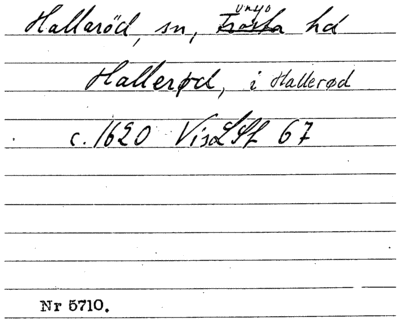 Hallaröd, sn, Onsjö hd
Hallerød, i Hallerød
c. 1620 VisLSt 67
Nr 5710.